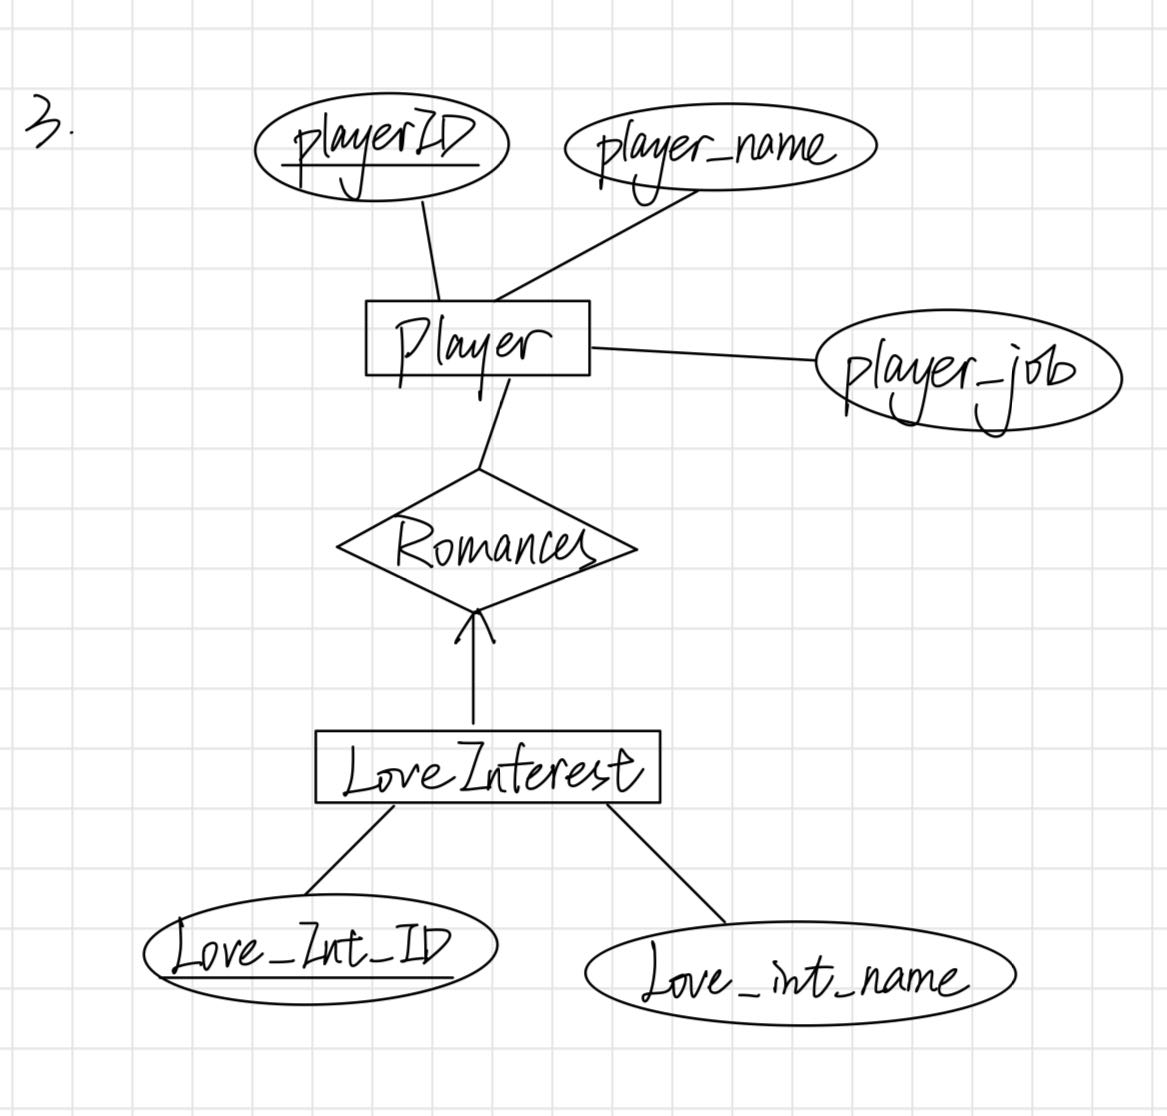 3.
playerID
player_name
Player
player_job
Romances
LoveInterest
Love_Int_ID
Love_int_name